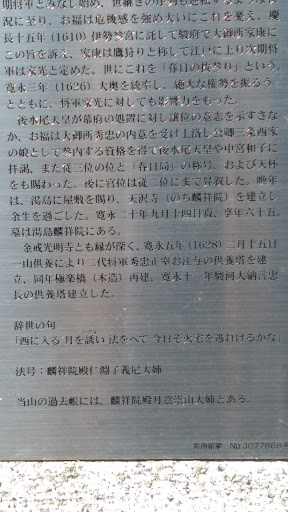 期将軍とみなし始め、世継ぎの序列も
況に至り、お福は危機感を強め大いにこれを憂え、慶
長十五年（1610）伊勢参宮に託して駿府で大御所家康に
この旨を訴え、家康は鷹狩りと称して江戸に上り次期将
軍は家光と定めた。世にこれを「春日の抜参り」という。
寛永三年（1626）大奥を統率し、絶大な権勢を振るう
とともに、将軍家光に対しても影響力をもった。
夜水尾天皇が幕府の処置に対し譲位の意志を示すさな
か、お福は大御所秀忠の内意を受け上洛し公卿三条西家
の娘として参内する資格を得て後水尾天皇や中宮和子に
拝謁、また従三位の位と「春日局」の称号、および天杯
をも賜わった。後に官位は従二位にまで昇叙した。晩年
は、湯島に屋敷を賜り、天沢寺（のち麟祥院）を建立し
余生を過ごした。寛永二十年九月十四日寂、享年六十五。
墓は湯島麟祥院にある。
金戒光明寺とも縁が深く、寛永五年（1628）二月十五日
一山供養により二代将軍秀忠正室お江与の供養塔を建
立、同年極楽橋（木造）再建、寛永十一年駿河大納言忠
長の供養塔を建立した。
辞世の句
「西に入る 月を誘い 法をへて 今日ぞ火宅を逃れけるかな」
いざな
法号：麟祥院殿仁淵了義尼大姉
当山の過去帳には、麟祥院殿月窓崇山大姉とある。
実用新案 No.3077668号